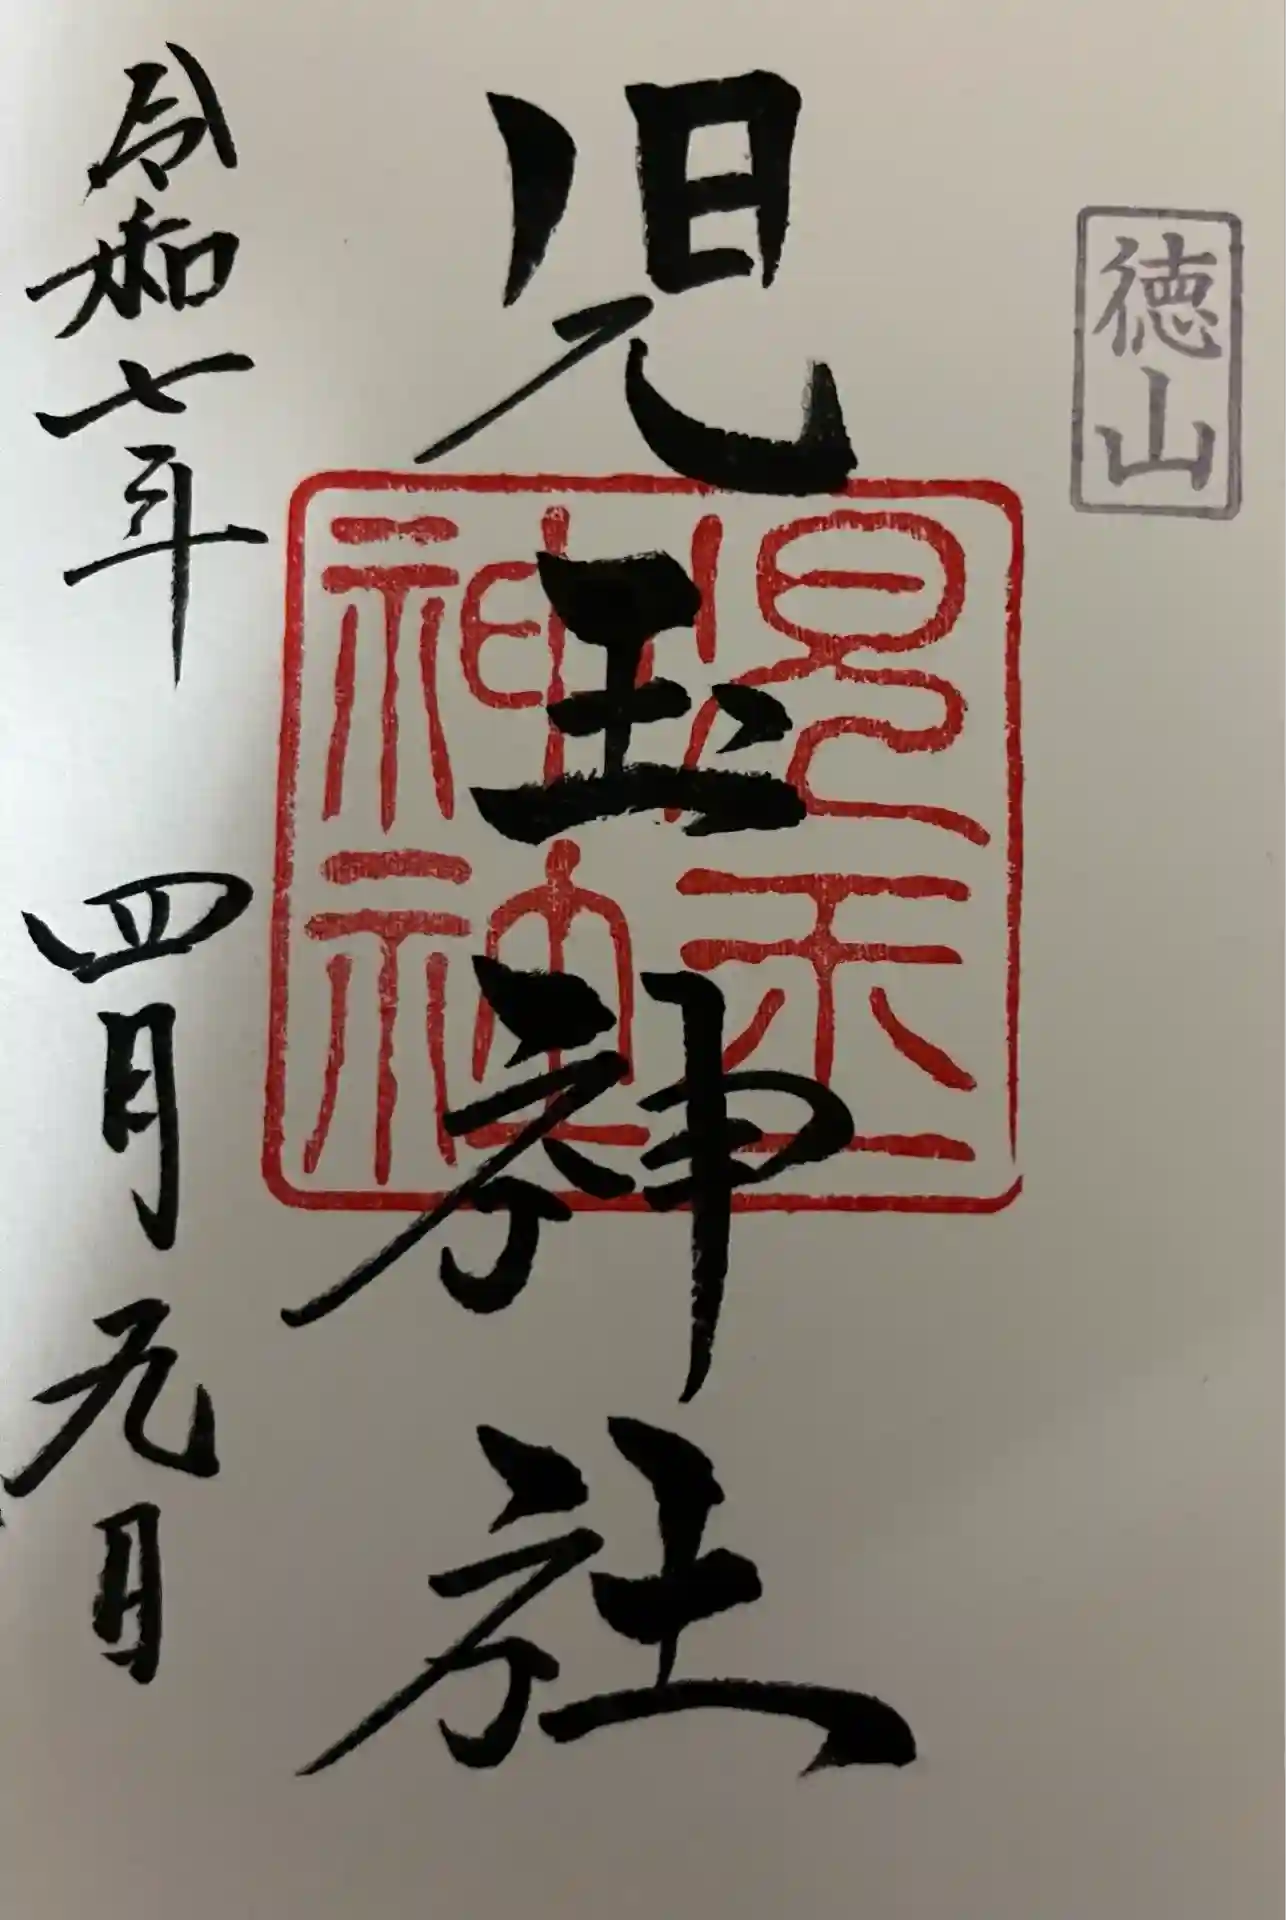 徳山
児玉神社
児玉神社
令和七年 四月九日